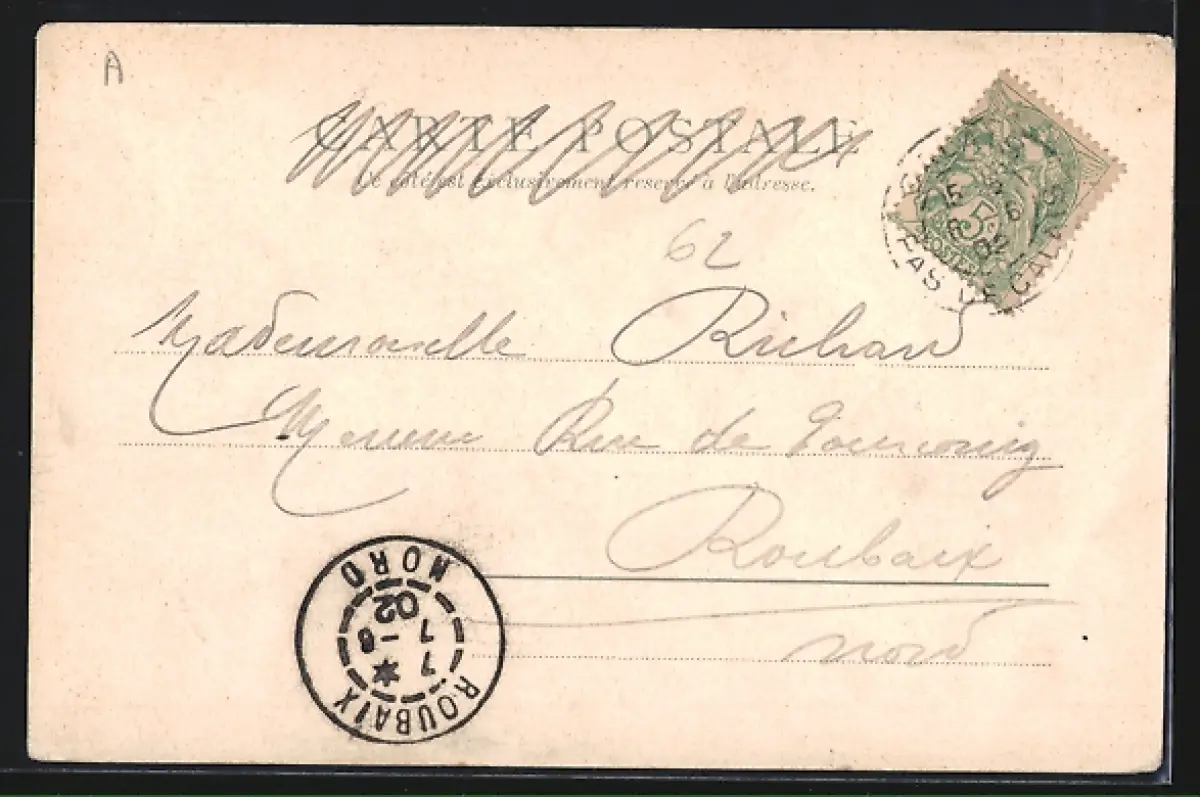 A
CARTE POSTALE
Ce côté est exclusivement reservé à l'adresse.
62
5
PAS DE CALAIS
Mademoiselle Richard
Rue de Tourcoing
Roubaix
Nord
ROUBAIX
NORD
7 *
7 - 8
02